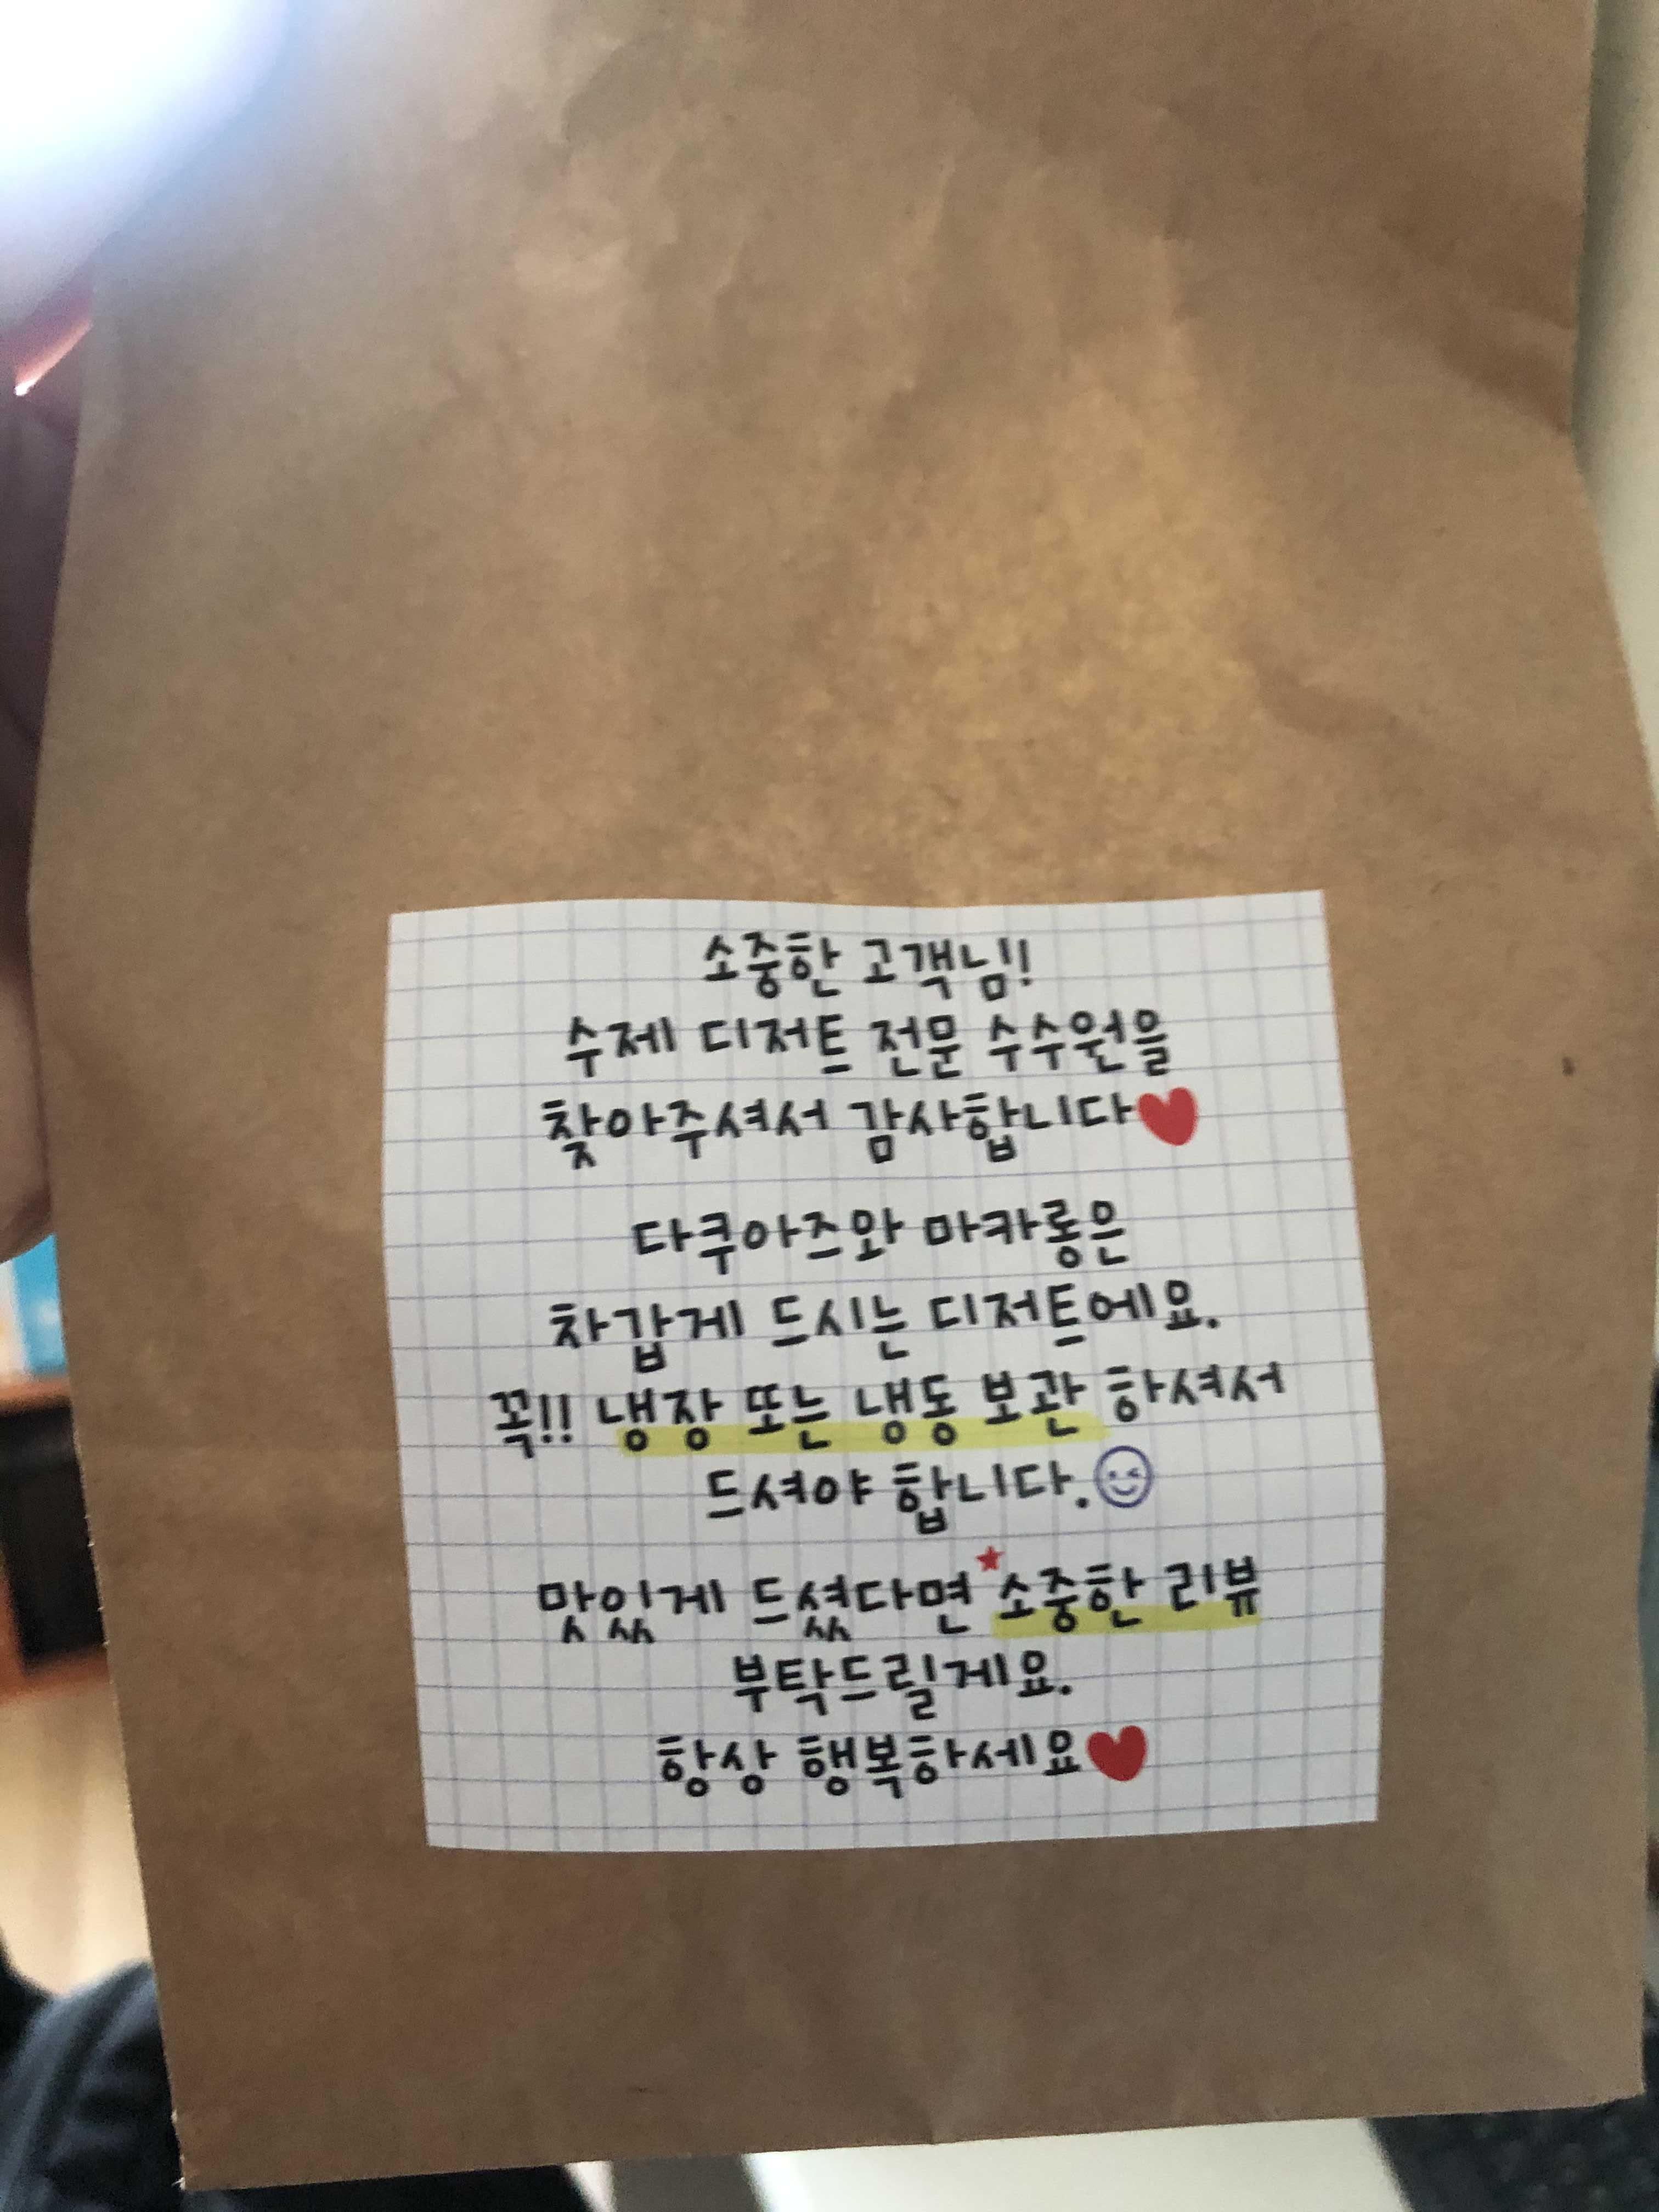 소중한 고객님!
수제 디저트 전문 수수원을
찾아주셔서 감사합니다
다쿠아즈와 마카롱은
차갑게 드시는 디저트에요.
꼭!! 냉장 또는 냉동 보관 하셔서
드셔야 합니다.
맛있게 드셨다면 소중한 리뷰
부탁드릴게요.
항상 행복하세요